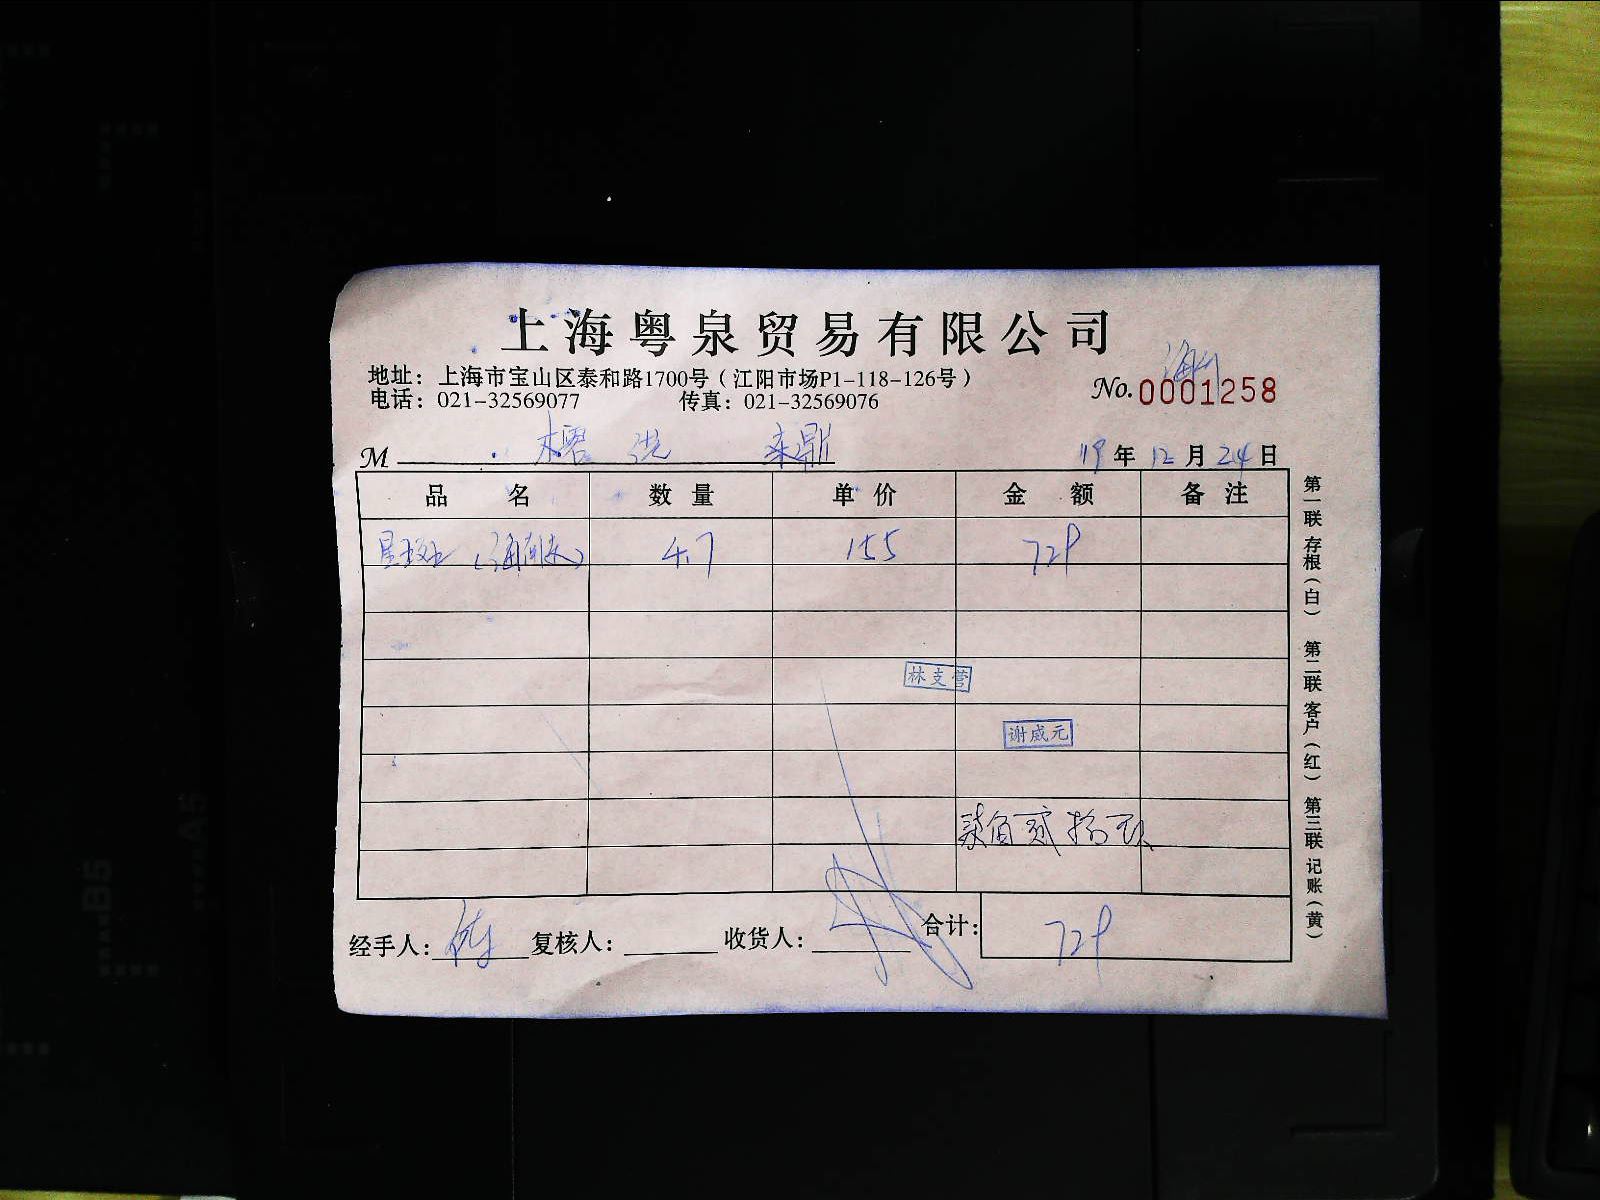 上海粤泉贸易有限公司
地址：上海市宝山区泰和路1700号（江阳市场P1-118-126号）
电话：021-32569077 传真：021-32569076
No.0001258
M 19年12月24日
品名 数量 单价 金额 备注
4.7 155 729
林支营
谢威元
合计：729
经手人： 复核人： 收货人：
第一联 存根（白） 第二联 客户（红） 第三联 记账（黄）
B5
A5